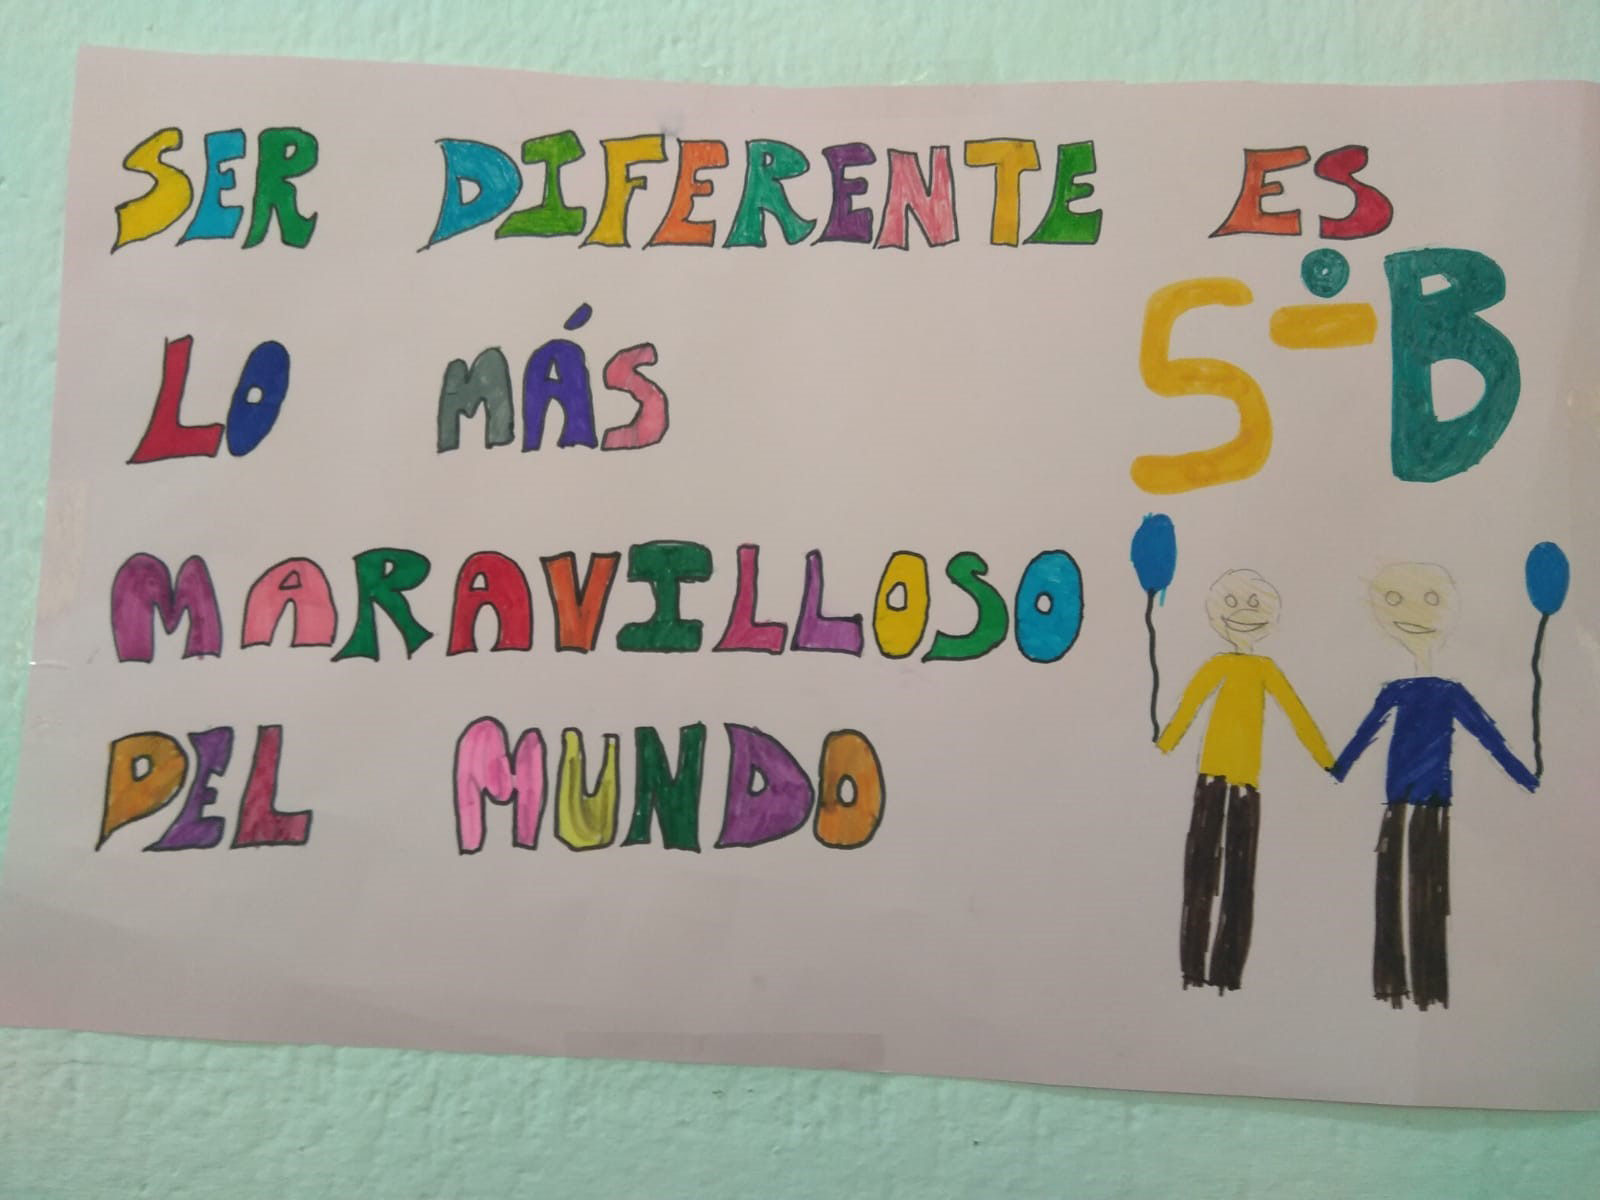 SER DIFERENTE ES
LO MÁS
MARAVILLOSO
DEL MUNDO
5º B